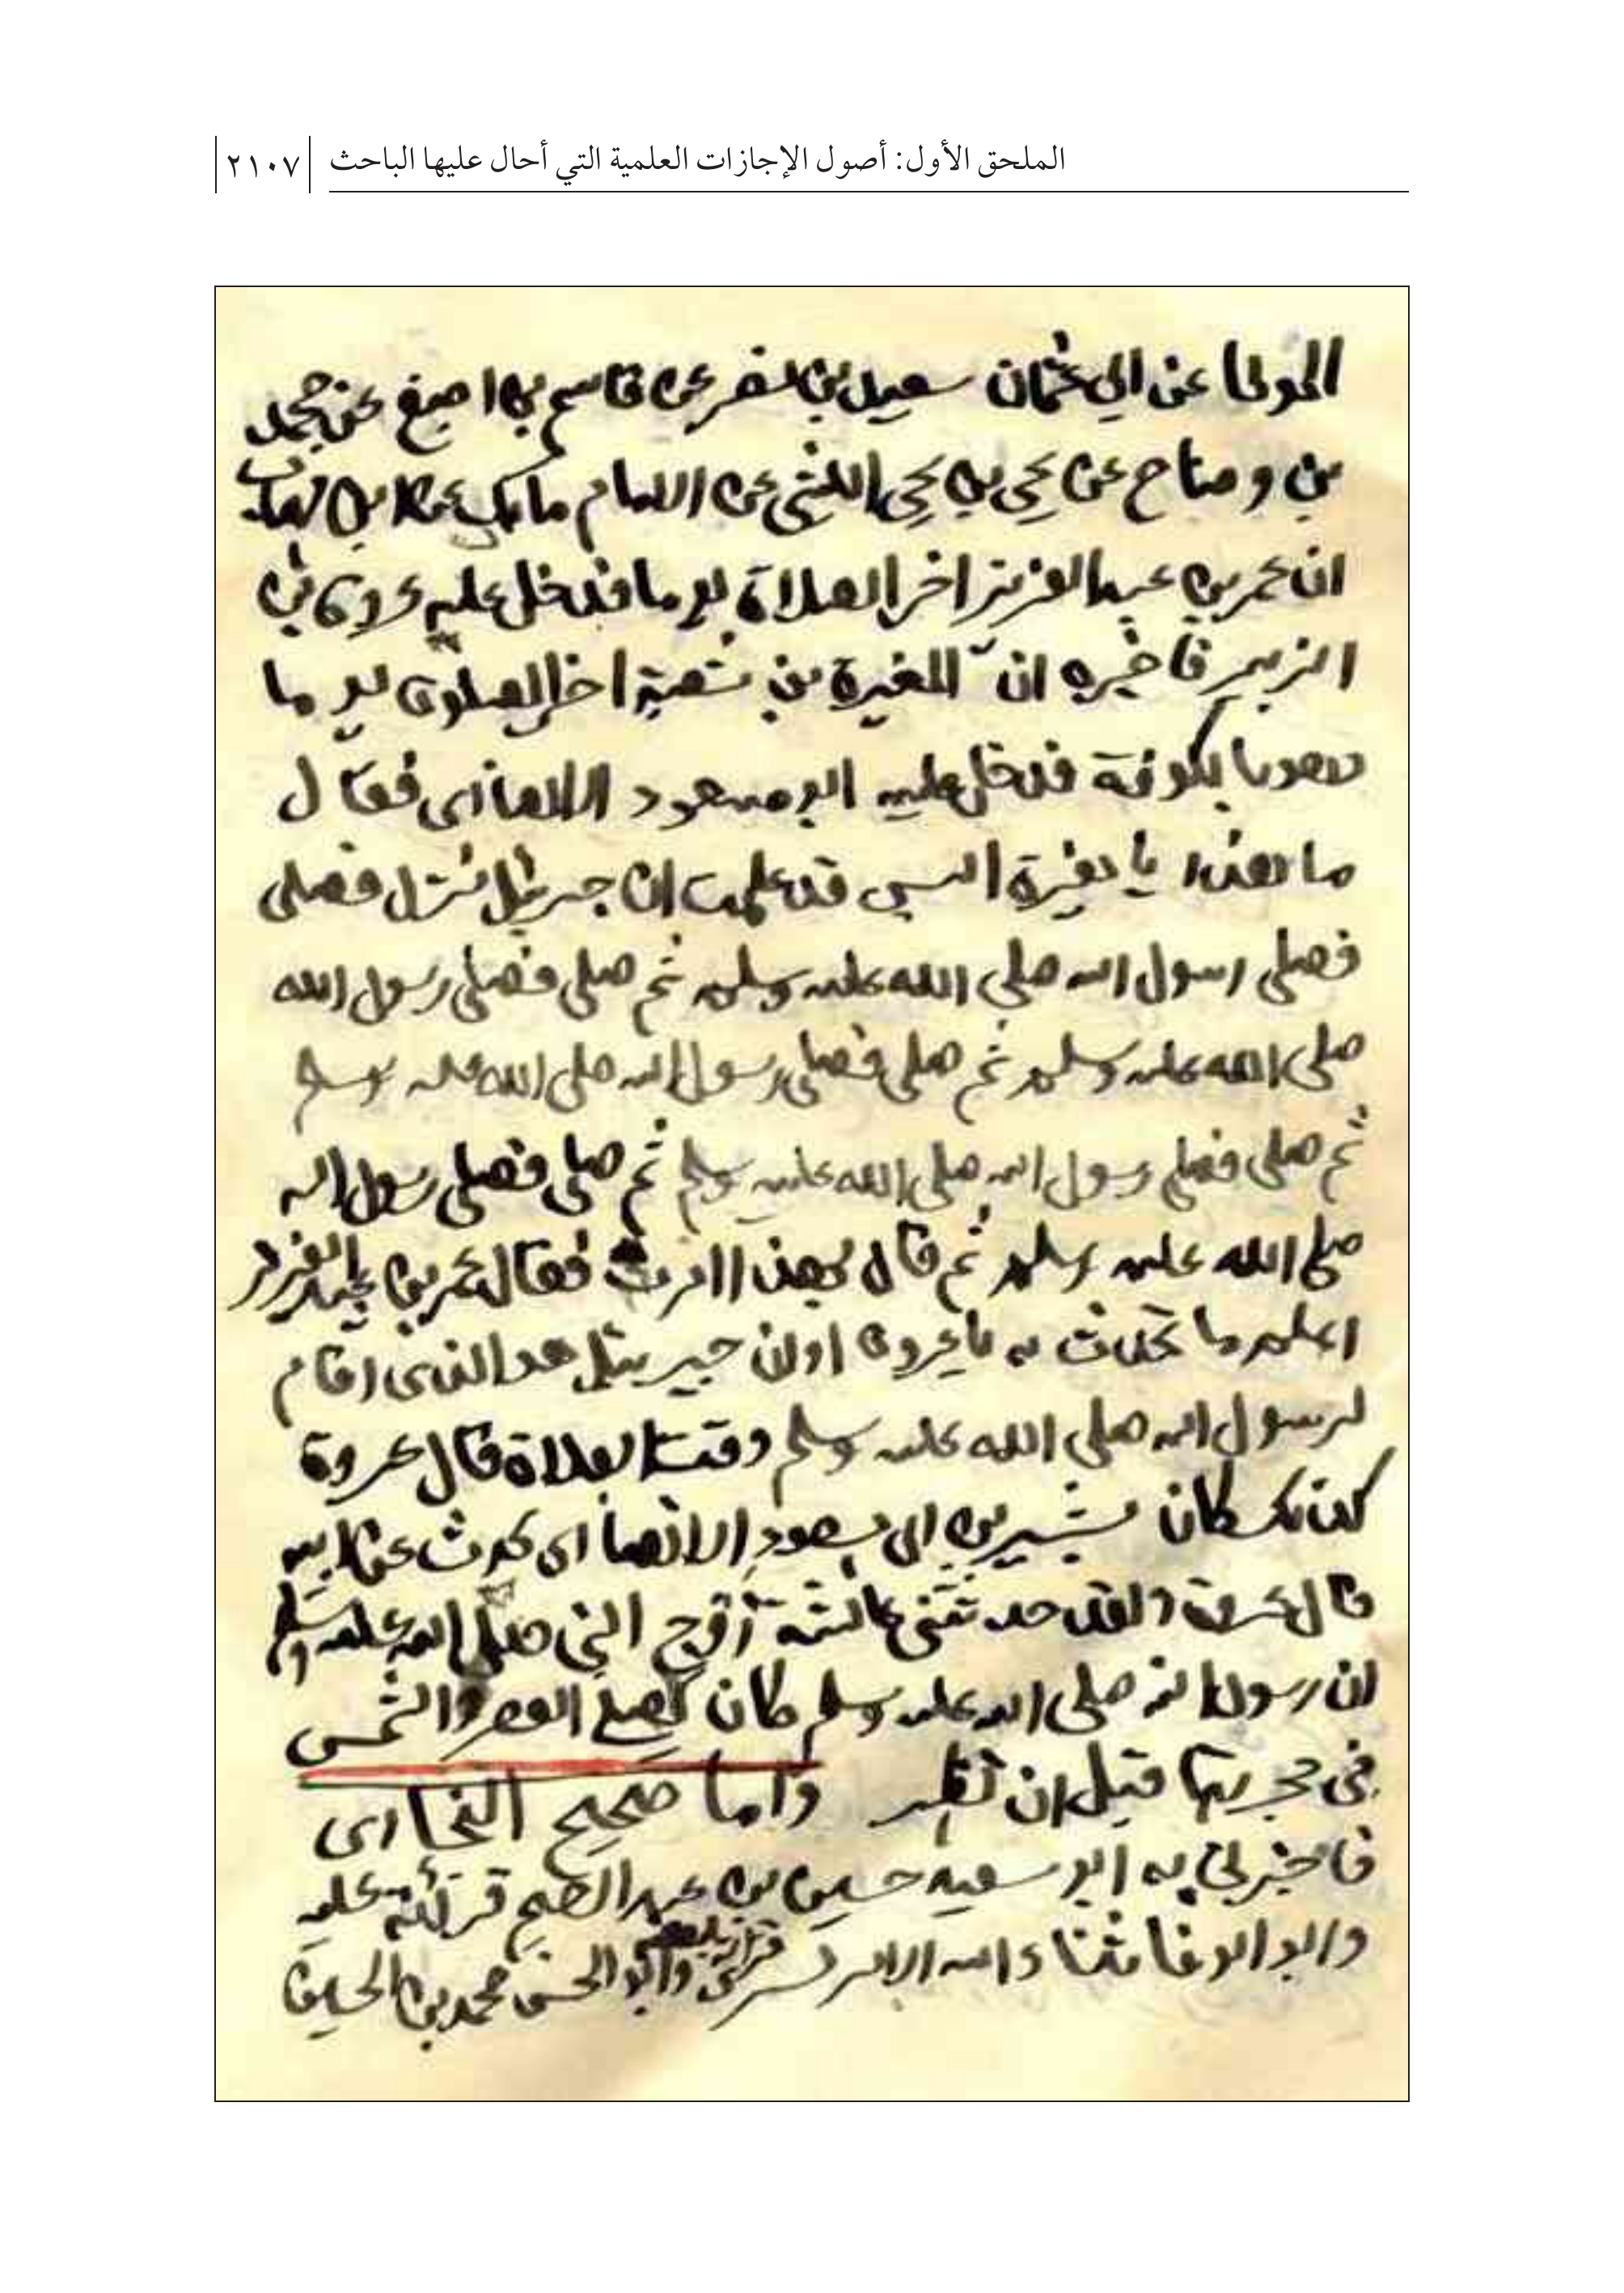 الملحق الأول: أصول الإجازات العلمية التي أحال عليها الباحث ٢١٠٧
الموطا عن ابي عثمان سعيد بن نصر عن قاسم بن اصبغ عن محمد
بن وضاح عن يحي بن يحي الليثي عن الامام مالك عن ابن شهاب
ان عمر بن عبد العزيز اخر الصلاة يوما فدخل عليه عروة بن
الزبير فاخبره ان المغيرة بن شعبة اخر الصلوة يوما
وهو بالكوفة فدخل عليه ابو مسعود الانصاري فقال
ما هذا يا مغيرة اليس قد علمت ان جبريل نزل فصلى
فصلى رسول الله صلى الله عليه وسلم ثم صلى فصلى رسول الله
صلى الله عليه وسلم ثم صلى فصلى رسول الله صلى الله عليه وسلم
ثم صلى فصلى رسول الله صلى الله عليه وسلم ثم صلى فصلى رسول الله
صلى الله عليه وسلم ثم قال بهذا امرت فقال عمر بن عبد العزيز
اعلم ما تحدث به يا عروة اوان جبريل هو الذي اقام
لرسول الله صلى الله عليه وسلم وقت الصلاة قال عروة
كذلك كان بشير بن ابي مسعود الانصاري يحدث عن ابيه
قال عروة ولقد حدثتني عائشة زوج النبي صلى الله عليه وسلم
ان رسول الله صلى الله عليه وسلم كان يصلي العصر والشمس
في حجرتها قبل ان تظهر واما صحيح البخاري
فاخبرني به ابو سعيد حسين بن عبد قرأته عليه
وابو الوفا وابو الحسن محمد بن الحسين